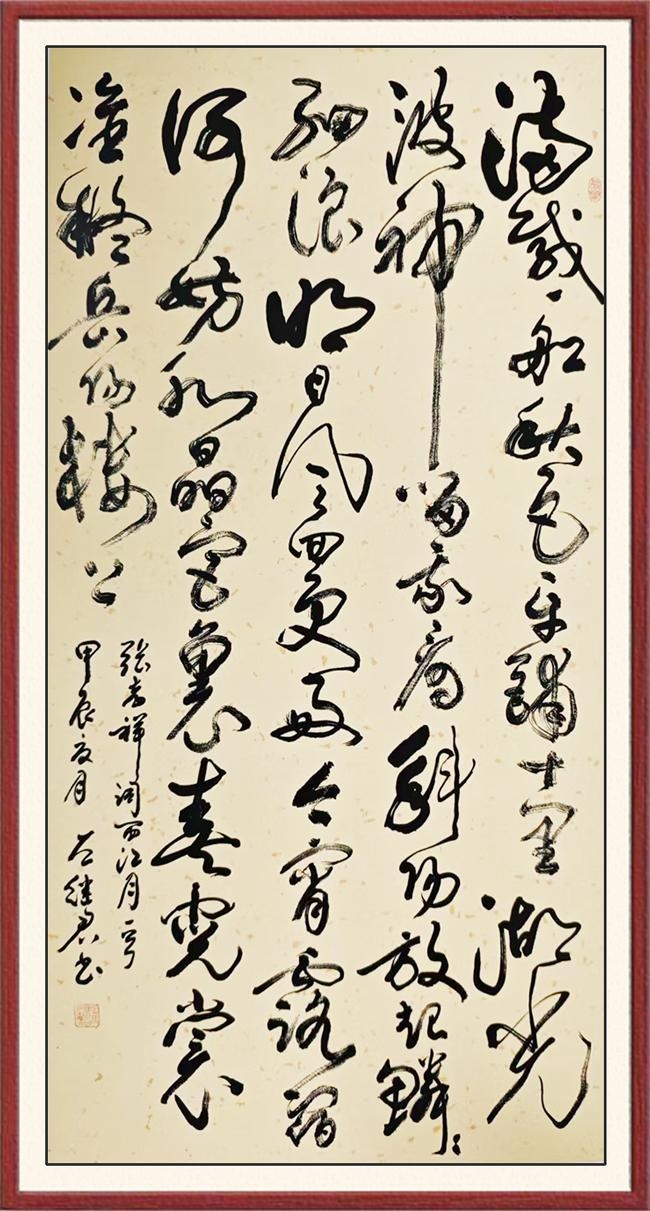 满载一船秋色平铺十里湖光
波神留我看斜阳放起鳞鳞
细浪明日风回更好今宵露宿
何妨水晶宫裏奏霓裳
准拟岳阳楼上
张孝祥词西江月一首
甲辰夏月 继君书